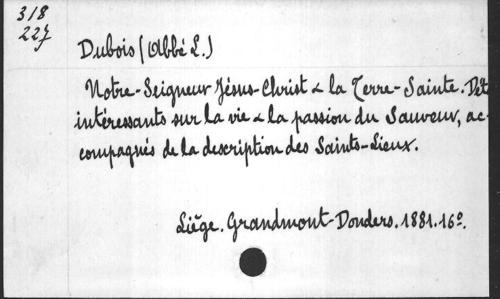 318
227
Dubois (Abbé L.)
Notre-Seigneur Jésus-Christ & la Terre-Sainte. Dét
intéressants sur la vie & la passion du Sauveur, ac-
compagnés de la description des Saints-Lieux.
Liège. Grandmont-Donders. 1881. 16º.